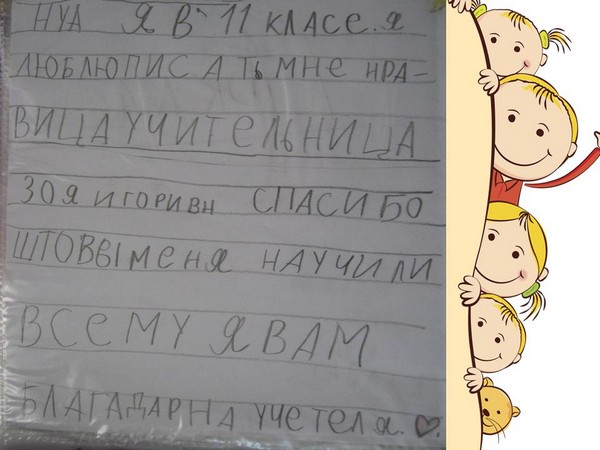 НУА Я В 11 КЛАССЕ. Я
ЛЮБЛЮПИСАТЬ МНЕ НРА-
ВИЦА УЧИТЕЛЬНИЦА
ЗОЯ ИГОРИВН СПАСИБО
ШТОВЫ МЕНЯ НАУЧИЛИ
ВСЕМУ Я ВАМ
БЛАГАДАРНА УЧЕТЕЛЯ.